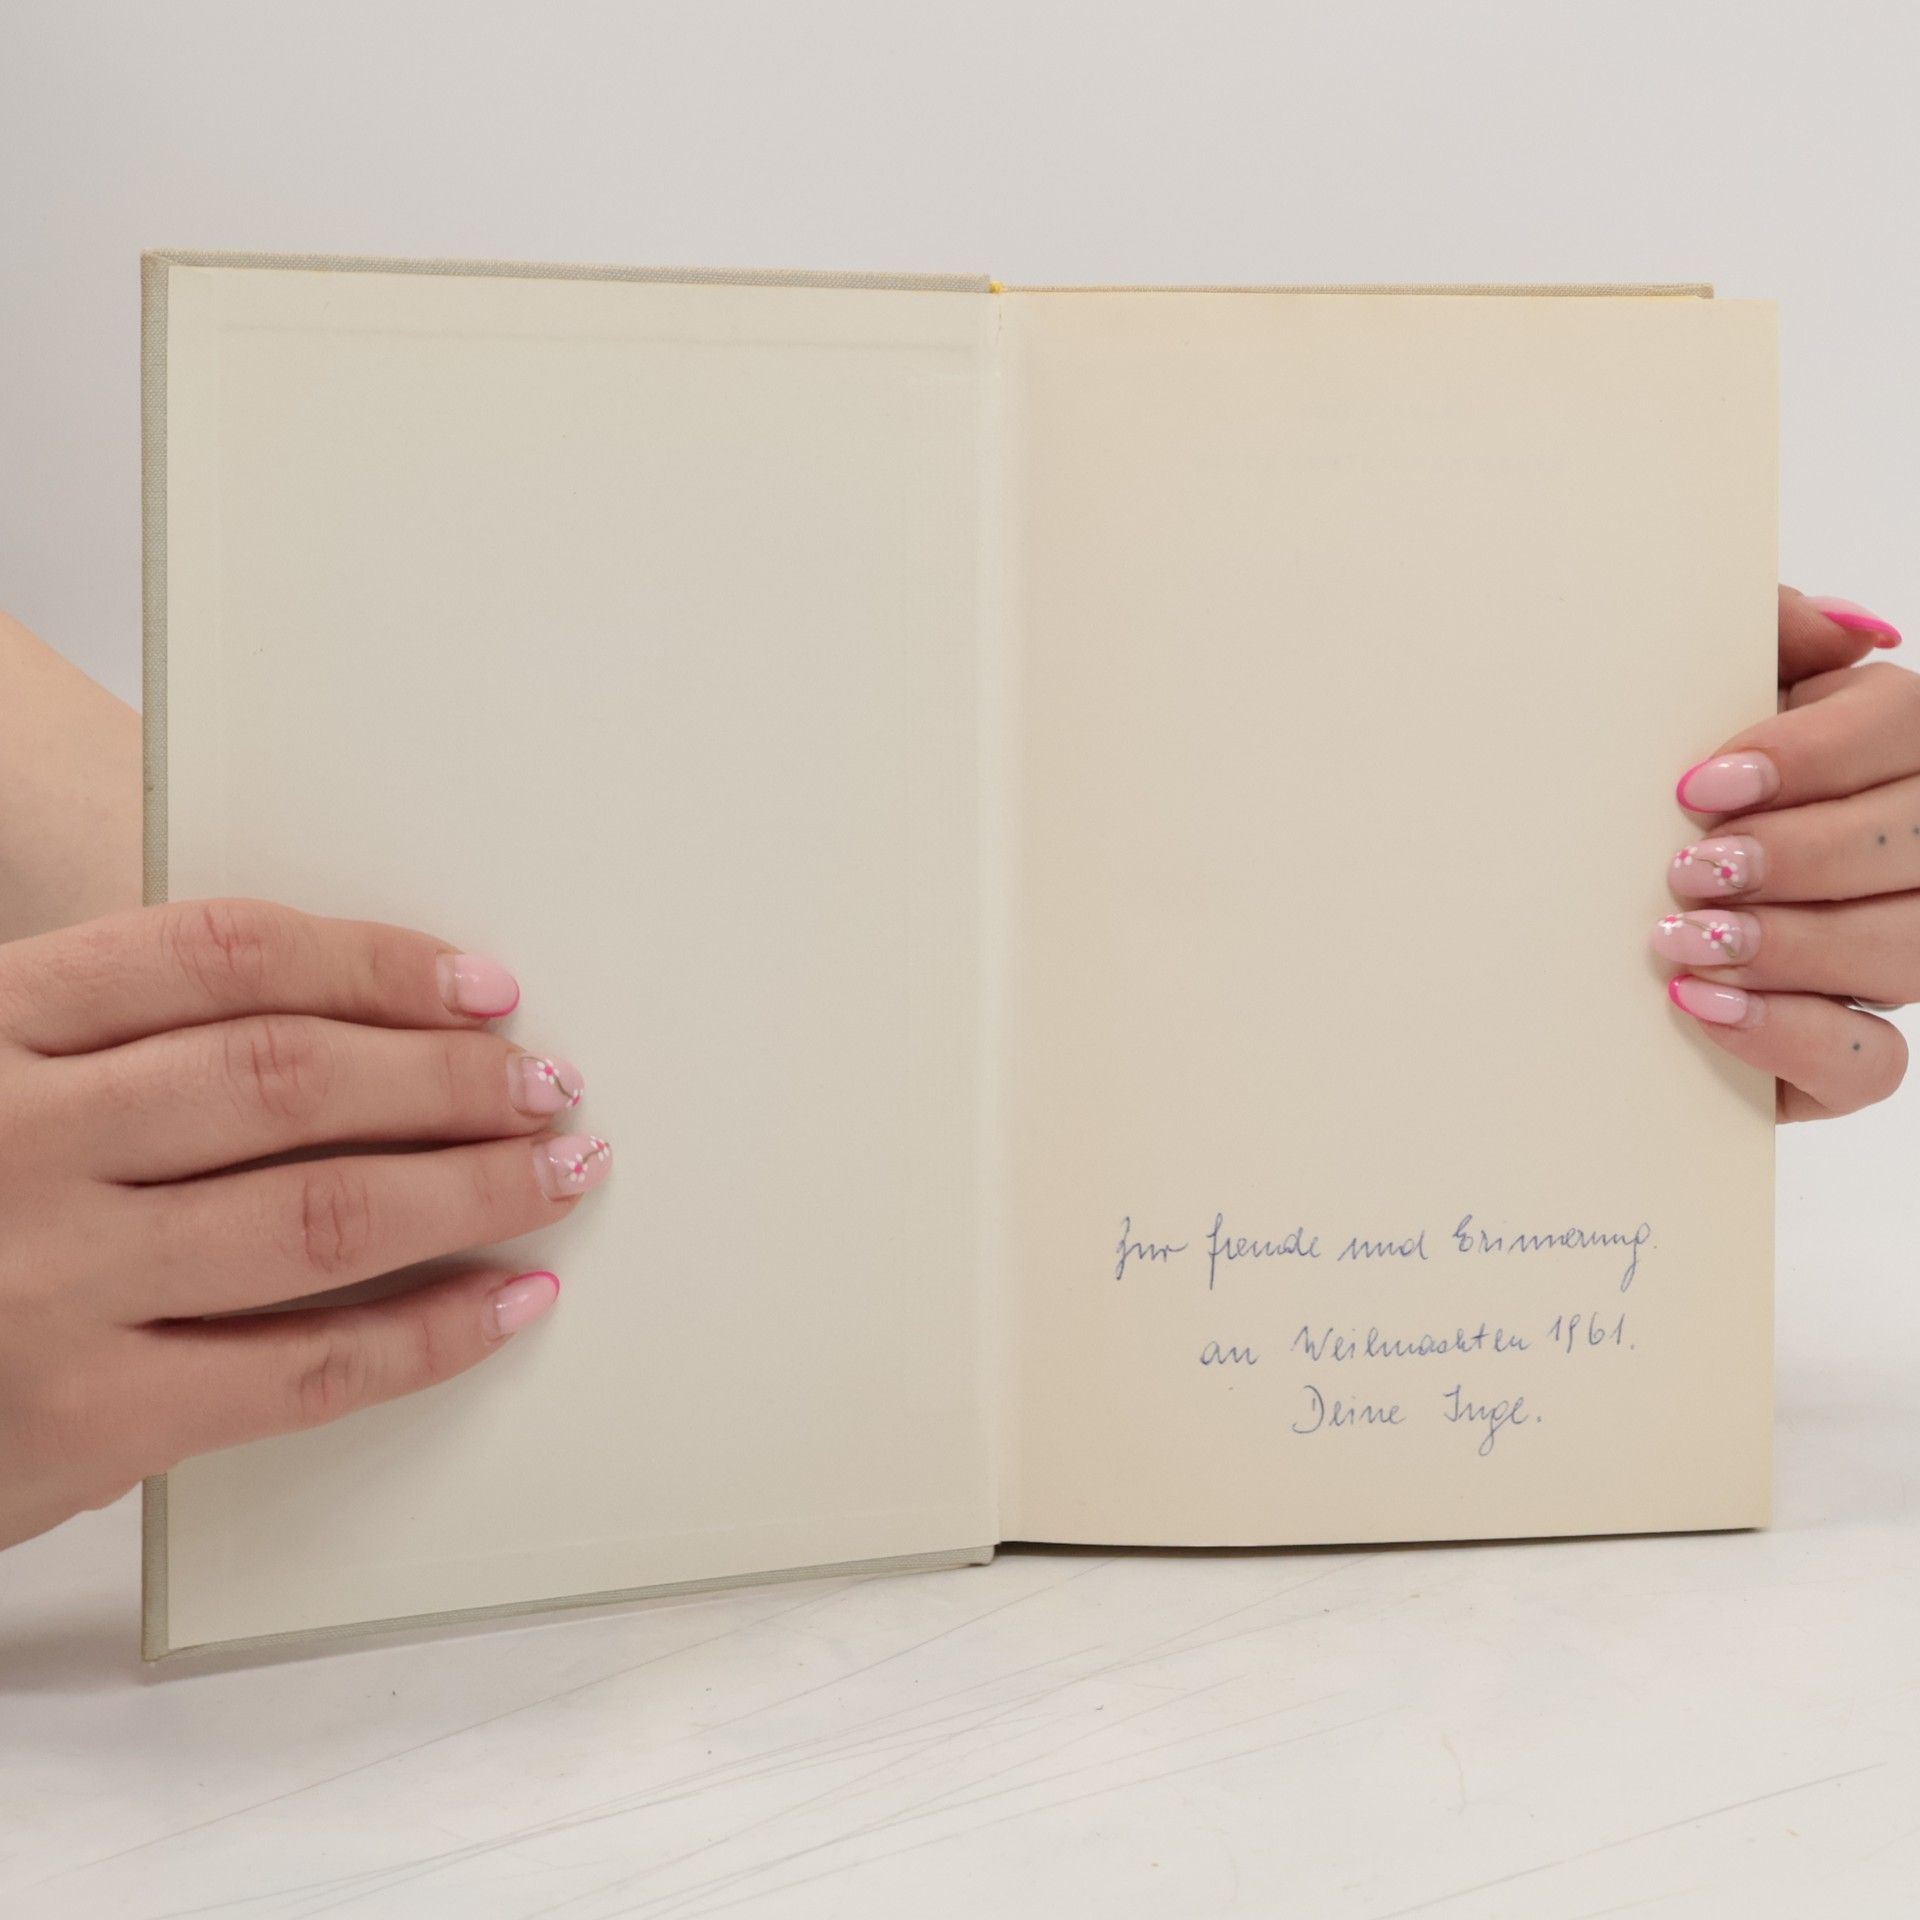 Zur Freude und Erinnerung
an Weihnachten 1961.
Deine Inge.